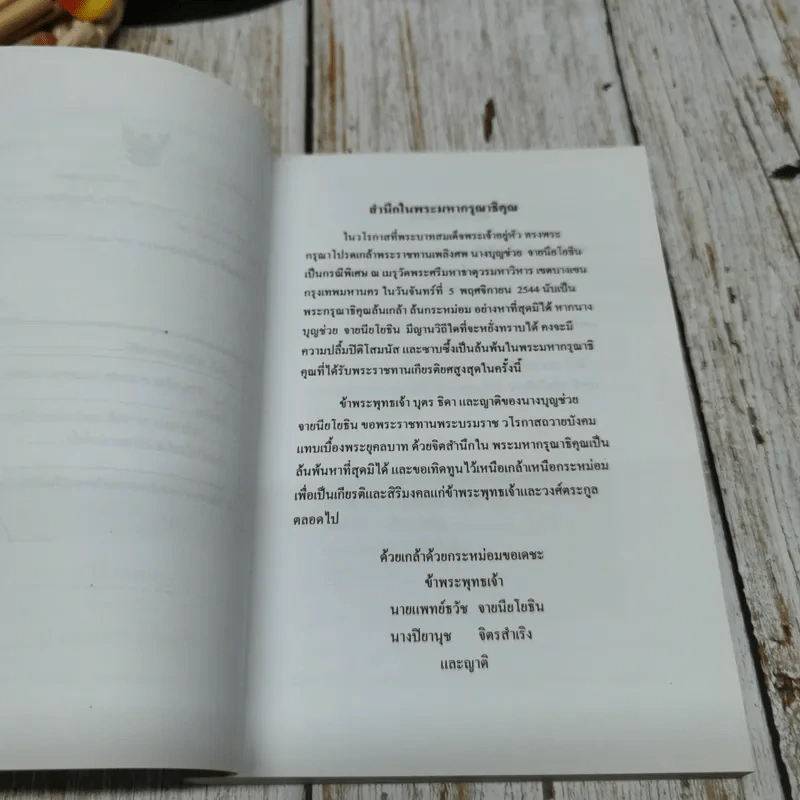 สำนึกในพระมหากรุณาธิคุณ
ในวโรกาสที่พระบาทสมเด็จพระเจ้าอยู่หัว ทรงพระ
กรุณาโปรดเกล้าพระราชทานเพลิงศพ นางบุญช่วย จายนียโยธิน
เป็นกรณีพิเศษ ณ เมรุวัดพระศรีมหาธาตุวรมหาวิหาร เขตบางเขน
กรุงเทพมหานคร ในวันจันทร์ที่ 5 พฤศจิกายน 2544 นับเป็น
พระกรุณาธิคุณล้นเกล้า ล้นกระหม่อม อย่างหาที่สุดมิได้ หากนาง
บุญช่วย จายนียโยธิน มีญาณวิถีใดที่จะหยั่งทราบได้ คงจะมี
ความปลื้มปิติโสมนัส และซาบซึ้งเป็นล้นพ้นในพระมหากรุณาธิ
คุณที่ได้รับพระราชทานเกียรติยศสูงสุดในครั้งนี้
ข้าพระพุทธเจ้า บุตร ธิดา และญาติของนางบุญช่วย
จายนียโยธิน ขอพระราชทานพระบรมราช วโรกาสถวายบังคม
แทบเบื้องพระยุคลบาท ด้วยจิตสำนึกใน พระมหากรุณาธิคุณเป็น
ล้นพ้นหาที่สุดมิได้ และขอเทิดทูนไว้เหนือเกล้าเหนือกระหม่อม
เพื่อเป็นเกียรติและสิริมงคลแก่ข้าพระพุทธเจ้าและวงศ์ตระกูล
ตลอดไป
ด้วยเกล้าด้วยกระหม่อมขอเดชะ
ข้าพระพุทธเจ้า
นายแพทย์ธวัช จายนียโยธิน
นางปิยานุช จิตรสำเริง
และญาติ